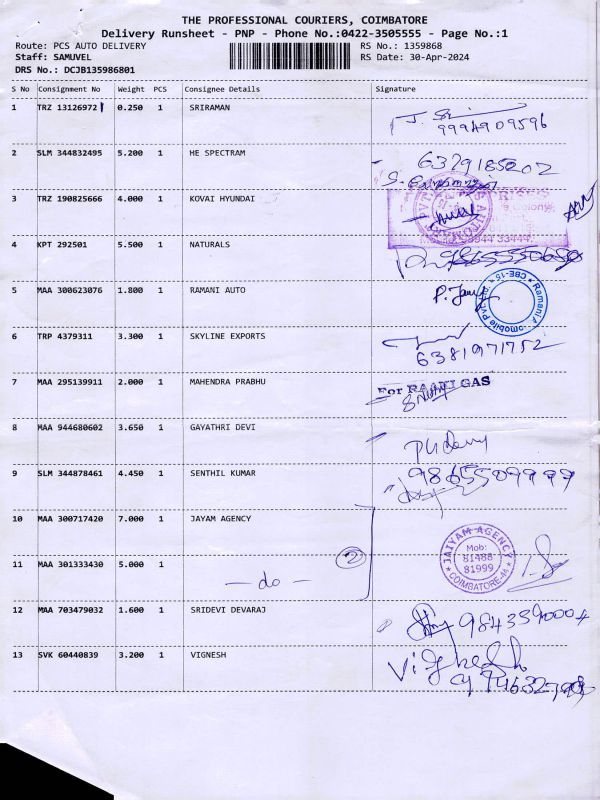 THE PROFESSIONAL COURIERS, COIMBATORE
Delivery Runsheet - PNP - Phone No.:0422-3505555 - Page No.:1
Route: PCS AUTO DELIVERY RS No.: 1359868
Staff: SAMUVEL RS Date: 30-Apr-2024
DRS No.: DCJB135986801
S No Consignment No Weight PCS Consignee Details Signature
1 TRZ 13126972 0.250 1 SRIRAMAN
9994909596
2 SLM 344832495 5.200 1 HE SPECTRAM 6379185202
3 TRZ 190825666 4.000 1 KOVAI HYUNDAI
4 KPT 292501 5.500 1 NATURALS
5 MAA 300623076 1.800 1 RAMANI AUTO
CBE-15
6 TRP 4379311 3.300 1 SKYLINE EXPORTS
6381971752
7 MAA 295139911 2.000 1 MAHENDRA PRABHU
8 MAA 944680602 3.650 1 GAYATHRI DEVI
9 SLM 344878461 4.450 1 SENTHIL KUMAR
10 MAA 300717420 7.000 1 JAYAM AGENCY
JAIYAM AGENCY
Mob:
81488
81999
COIMBATORE-44
11 MAA 301333430 5.000 1 2
— do —
12 MAA 703479032 1.600 1 SRIDEVI DEVARAJ
13 SVK 60440839 3.200 1 VIGNESH Vighesh